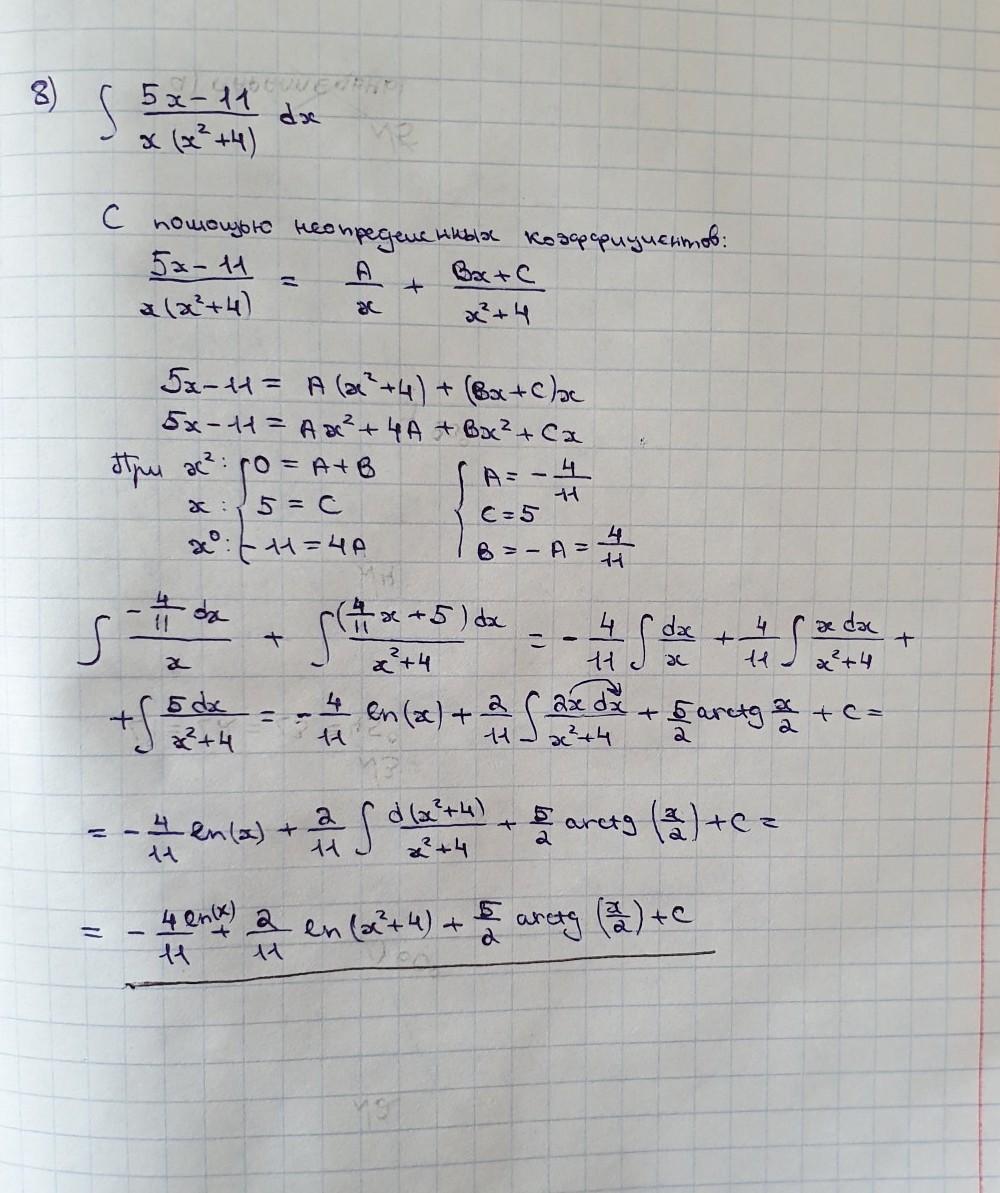 8) ∫ (5x-11)/(x(x²+4)) dx
С помощью неопределенных коэффициентов:
(5x-11)/(x(x²+4)) = A/x + (Bx+C)/(x²+4)
5x-11 = A(x²+4) + (Bx+C)x
5x-11 = Ax² + 4A + Bx² + Cx
При x²: { 0 = A+B { A = - 4/11
x: 5 = C C = 5
x⁰: -11 = 4A B = -A = 4/11
∫ (-4/11 dx)/x + ∫ ((4/11 x + 5) dx)/(x²+4) = - 4/11 ∫ dx/x + 4/11 ∫ (x dx)/(x²+4) +
+ ∫ (5 dx)/(x²+4) = - 4/11 ln(x) + 2/11 ∫ (2x dx)/(x²+4) + 5/2 arctg x/2 + C =
= - 4/11 ln(x) + 2/11 ∫ d(x²+4)/(x²+4) + 5/2 arctg (x/2) + C =
= - (4 ln(x))/11 + 2/11 ln(x²+4) + 5/2 arctg (x/2) + C